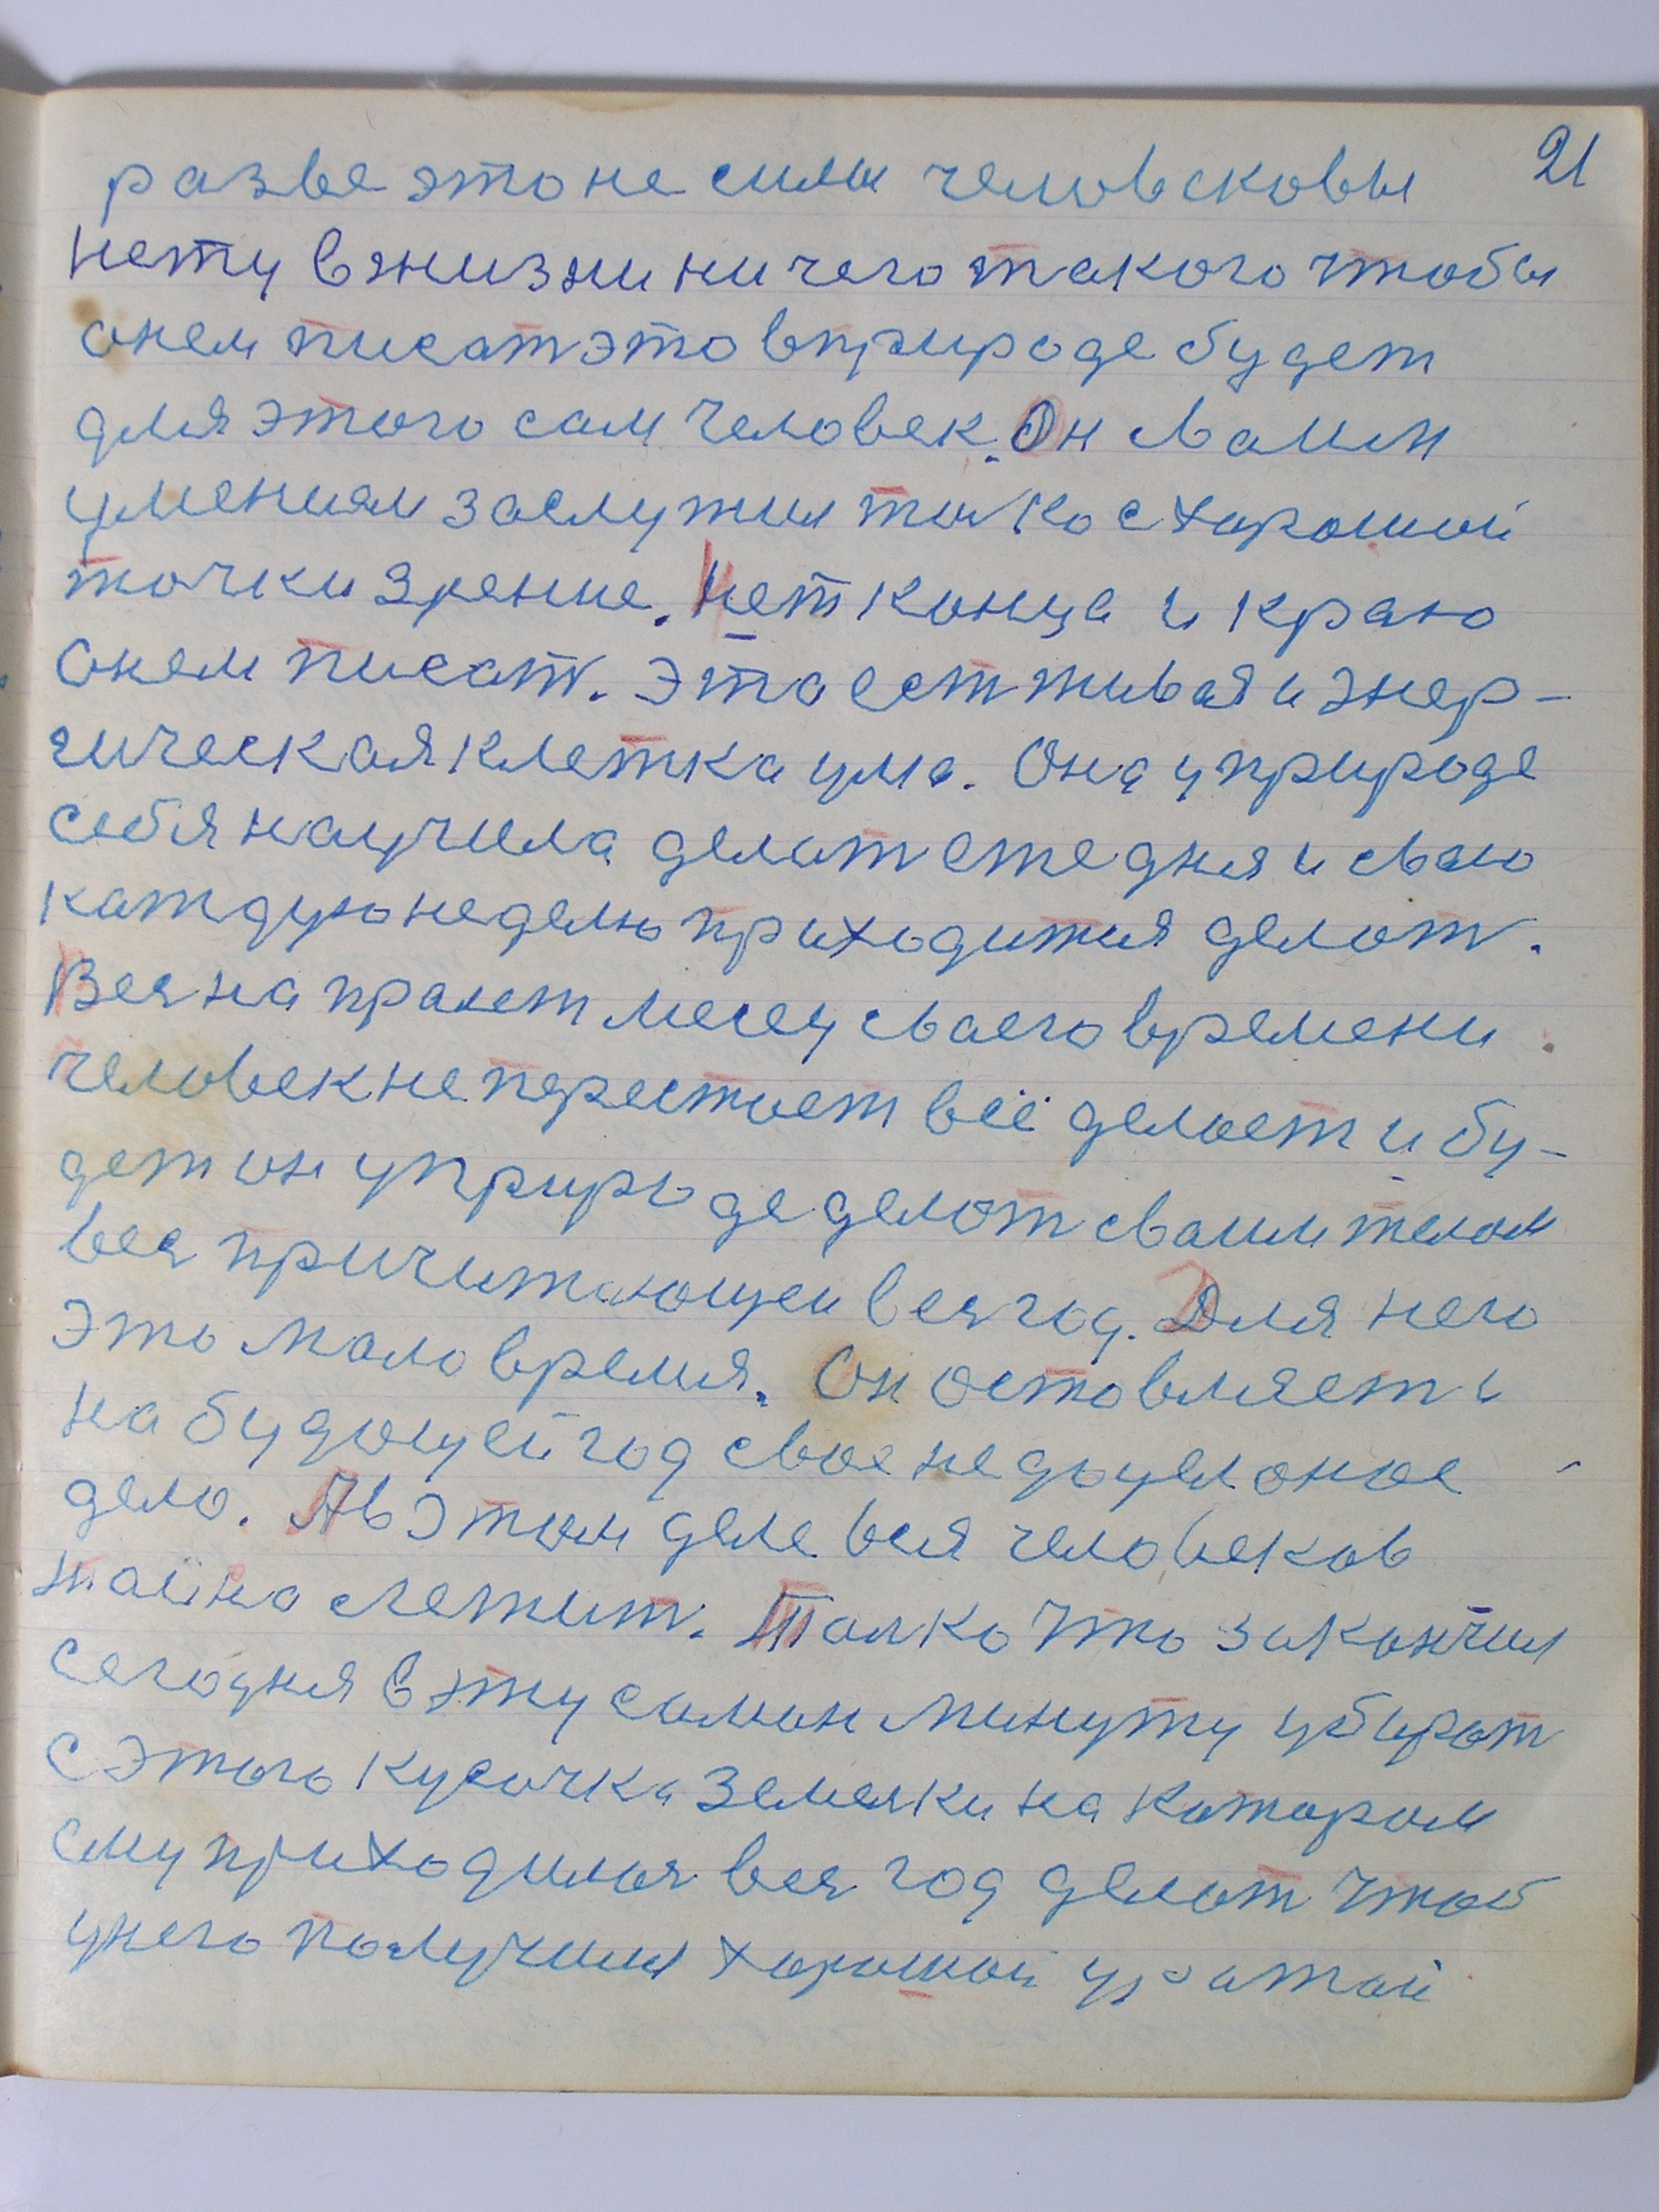 21
разве это не силы человековы
нету вжизни ни чего такого чтобы
онем писат это вприроде будет
для этого сам человек. Он сваим
умениям заслужил толко с хорошой
точки зрение. Нет конца и краю
онем писат. Это ест живая и энер-
гическая клетка ума. Она уприроде
себя научила делат ежедня и сваю
каждую неделю приходится делат.
Вся на пралет месец сваего времени
человек не перестает всё делает и бу-
дет он уприроде делат сваим телом
вся причитающеи вся год. Для него
это мало время. Он оставляет и
на будующей год свое не доделоное
дело. А в этом деле вся человеков
тайна лежит. Толко что закончил
сегодня в эту самою минуту убират
с этого кусочка земелки на котором
ему приходилося вся год делат чтоб
унего получился хорошой уражай